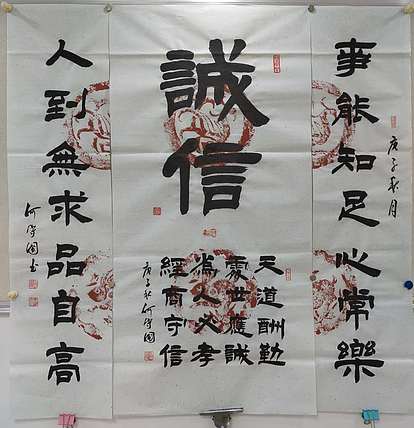 事能知足心常樂
庚子秋月
誠信
天道酬勤
處世誠
為人必孝
經商守信
庚子秋何國
人到無求品自高
何國书